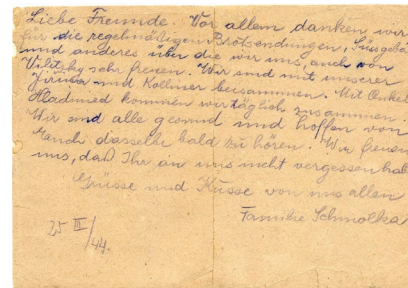 Liebe Freunde. Vor allem danken wir
für die regelmässigen Brotsendungen,
und anderes über die wir uns, auch von
sehr freuen. Wir sind mit unserer
und Kollmer beisammen. Mit Onkel
kommen wir täglich zusammen.
Wir sind alle gesund und hoffen von
Euch dasselbe bald zu hören. Wir freuen
uns, daß Ihr an uns nicht vergessen hab
Grüsse und Küsse von uns allen
Familie Schmolka
25 III/44.